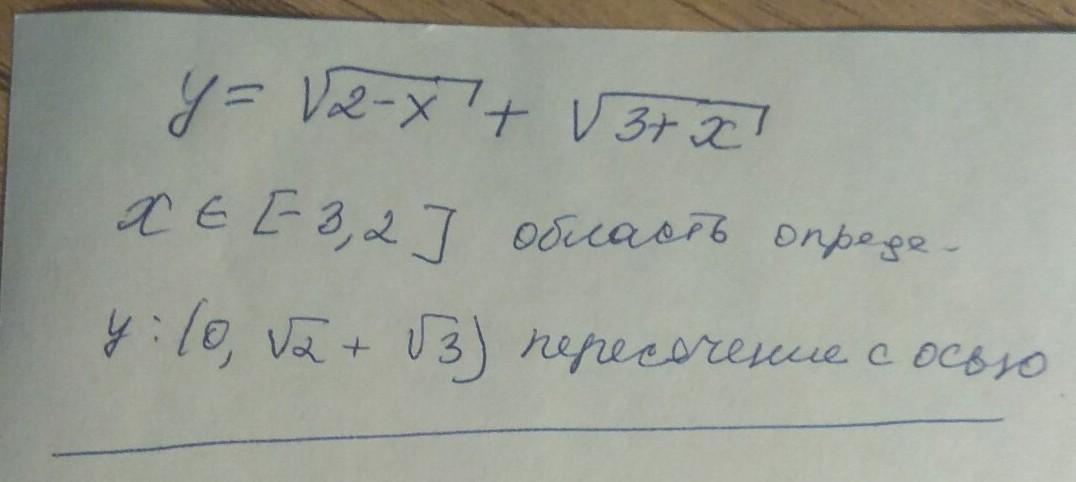 y = √2-x + √3+x
x ∈ [-3,2] область опреде-
y: (0, √2 + √3) пересечение с осью